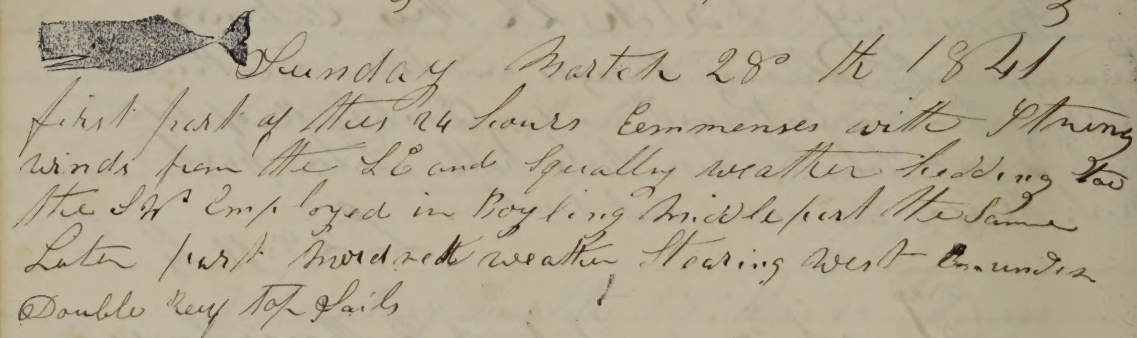 Sunday Martch 28 th 1841
first part of thes 24 hours Commenses with Strung
winds from the SE and Squally weather hedding to
the SW Employed in Boyling middle part the Same
Later part weather Stearing west under
Double Reef top Sails